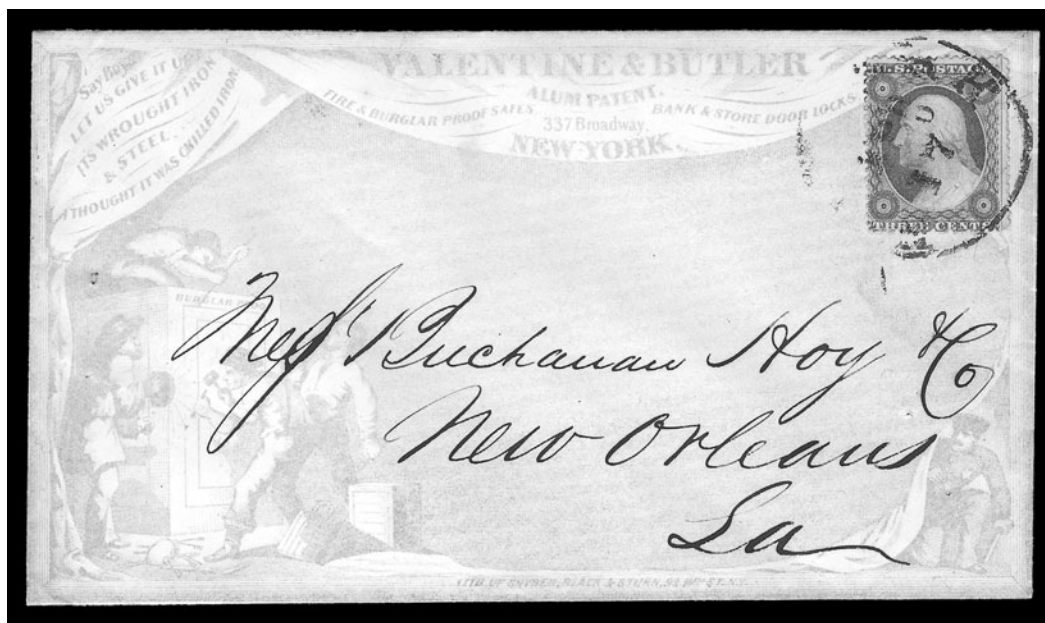 Say Boys
LET US GIVE IT UP
ITS WROUGHT IRON
& STEEL.
I THOUGHT IT WAS CHILLED IRON
VALENTINE & BUTLER
ALUM PATENT.
FIRE & BURGLAR PROOF SAFES. BANK & STORE DOOR LOCKS.
337 Broadway.
NEW-YORK.
U.S. POSTAGE
THREE CENTS
BURGLAR PROOF
Mess Buchanan Hoy & Co
New Orleans
La
LITH. OF SNYDER, BLACK & STURN, 92 WM ST. N.Y.